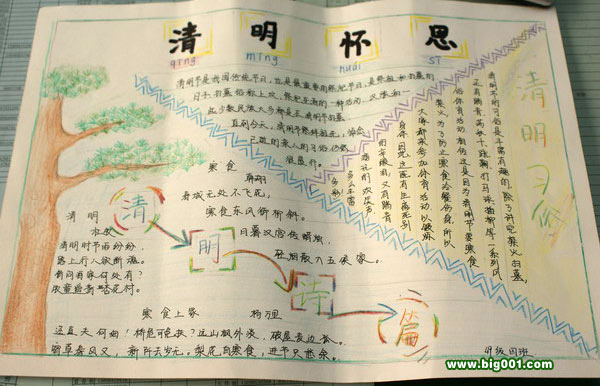 清明怀思
qīng míng huái sī
清明节是我国传统节日,也是最重要的祭祀节日,是祭祖和扫墓的
日子。扫墓俗称上坟,祭祀死者的一种活动。汉族和一
些少数民族大多都是在清明节扫墓。
直到今天,清明节祭拜祖先,悼念
已逝的亲人的习俗仍然
很盛行。
寒食
韩翃
春城无处不飞花,
寒食东风御柳斜。
日暮汉宫传蜡烛,
轻烟散入五侯家。
清明
杜牧
清明时节雨纷纷,
路上行人欲断魂。
借问酒家何处有?
牧童遥指杏花村。
清
明
诗
篇
寒食上冢
杨万里
迳直夫何细!桥危可免扶?远山枫外淡,破屋麦边孤。
宵草春风又,新阡去岁无。梨花自寒食,进节只愁余。
清明习俗
清明节的习俗是丰富有趣的,除了讲究禁火、扫墓,
还有踏青、荡秋千、蹴鞠、打马球、插柳等一系列风
俗体育活动。相传这是因为清明节要寒食
禁火,为了防止寒食冷餐伤身,所以
大家都来参加体育活动,以锻炼
身体。因此,这个节日既有生离死别
的辛酸泪,又有踏青
游玩的欢笑声,
多么丰富
多彩!
四班
www.big001.com